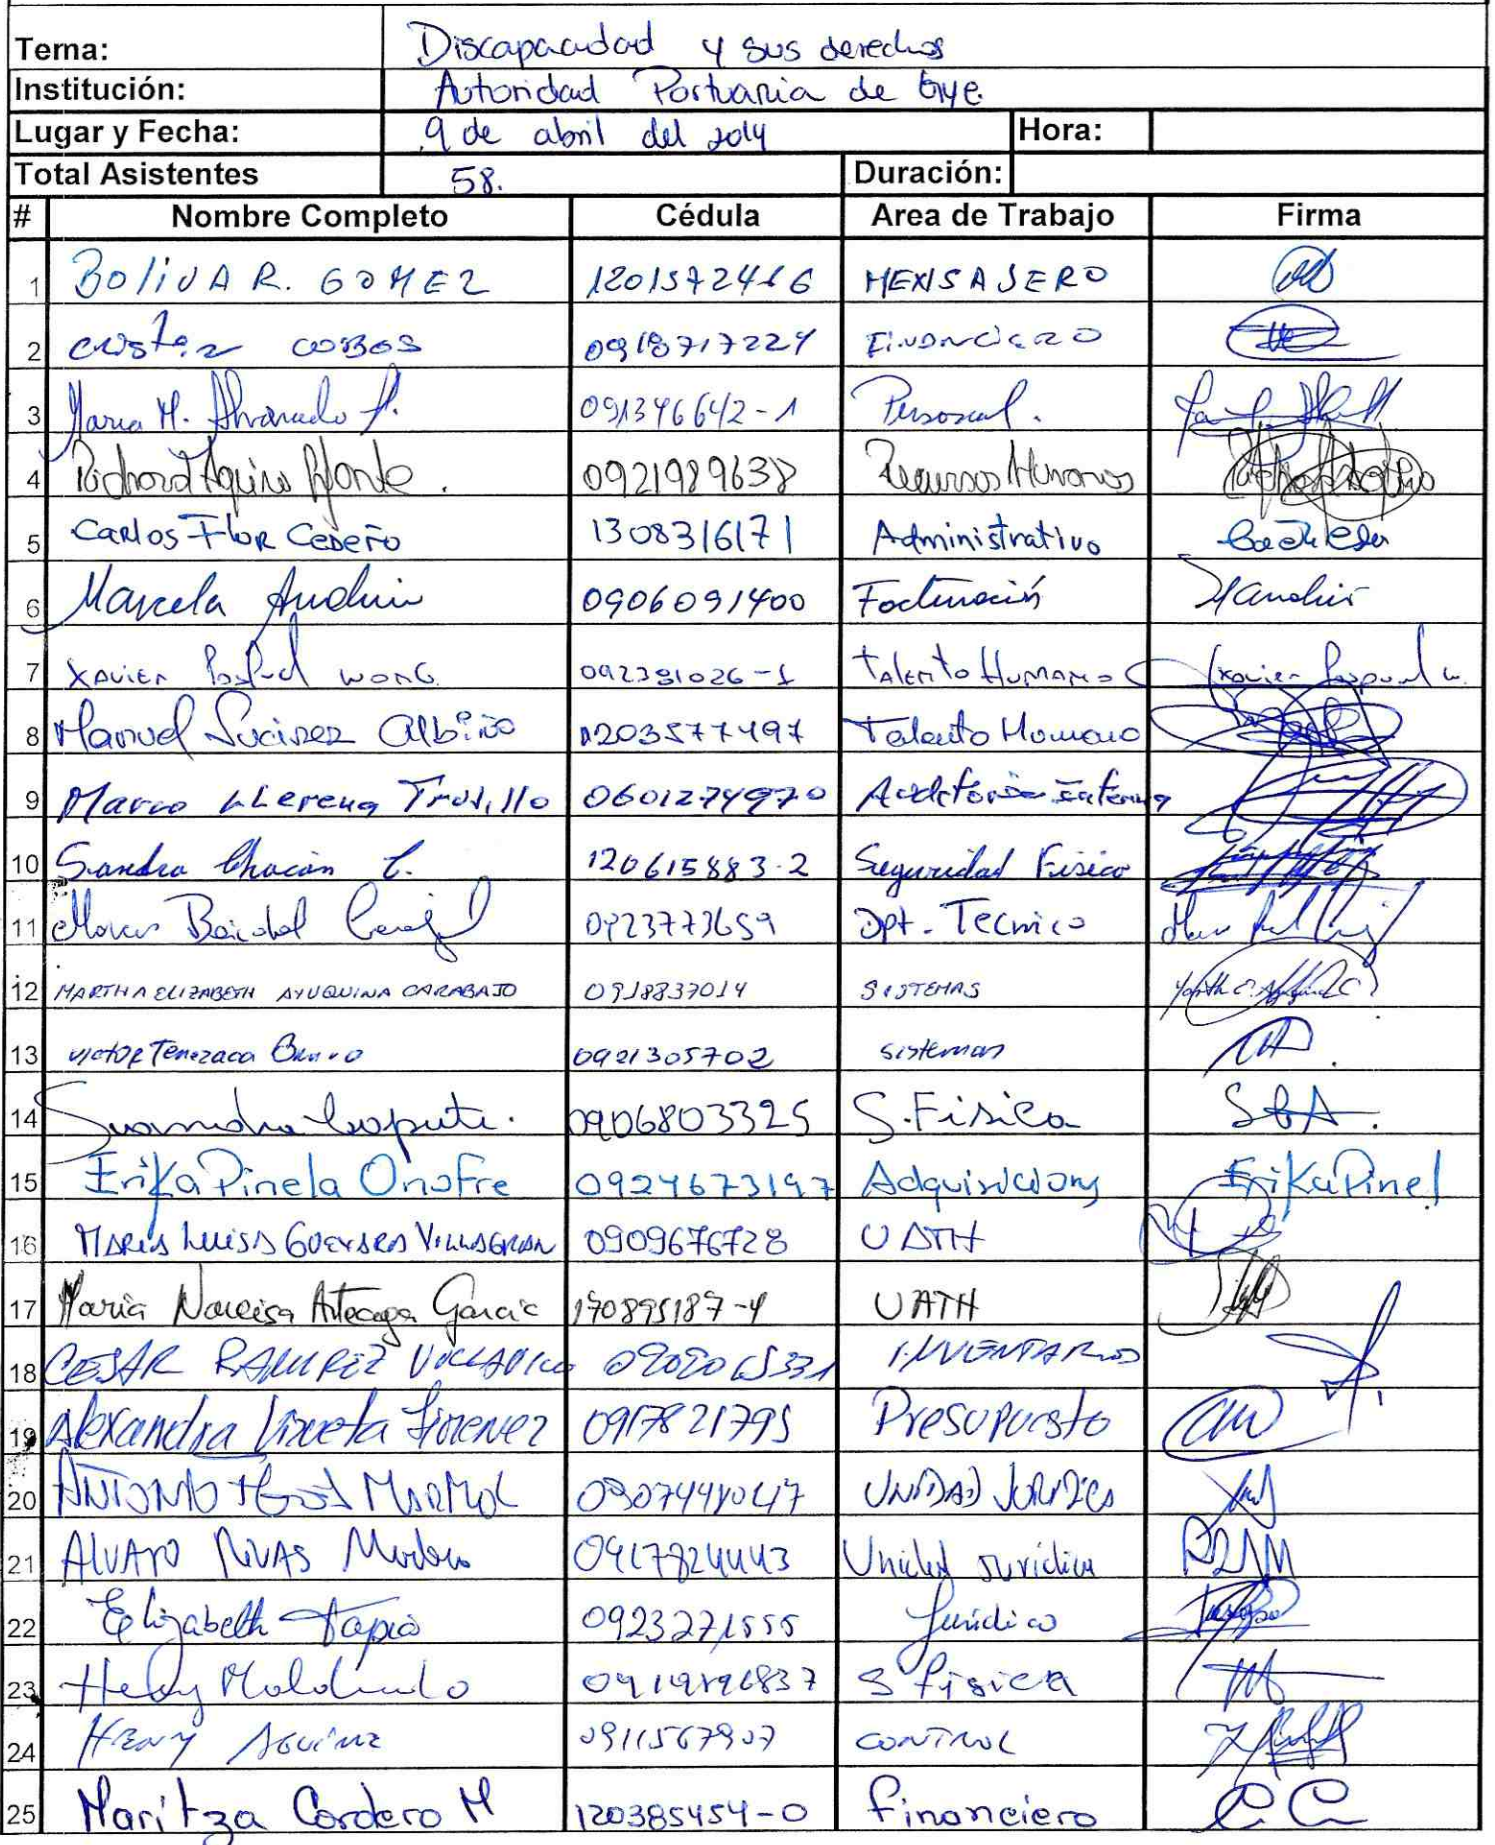 Tema: Discapacidad y sus derechos
Institución: Autoridad Portuaria de Gye.
Lugar y Fecha: 9 de abril del 2014 Hora:
Total Asistentes 58. Duración:
# Nombre Completo Cédula Area de Trabajo Firma
1 BOLIVAR R. GOMEZ MENSAJERO
2 COBOS 0918717224 FINANCIERO
3 Maria M. Alvarado A. 091346642-1 Personal.
4 Richard Aquino 0921989638 Recursos Humanos
5 Carlos Flor Cedeño 1308316171 Administrativo
6 Marcela 0906091400 Facturación
7 Xavier Wong 092391026-1 Talento Humano
8 Manuel Albiño 1203577497 Talento Humano
9 Marco Llerena Trujillo 0601274970 Auditoria Interna
10 Sandra Chacón C. 120615883-2 Seguridad Fisica
11 0923773659 Dpt. Tecnico
12 MARTHA ELIZABETH AYUQUINA CARABAJO 0918837014 SISTEMAS
13 Victor Tenezaca 0921305702 sistemas
14 0906803325 S. Fisica SBA.
15 Erika Pinela Onofre 0924673197 Adquisiciones Erika Pinel
16 MARIA LUISA GUEVARA VILLAGRAN 0909676728 UATH
17 Maria Narcisa Arteaga Garcia 170895187-4 UATH
18 CESAR RAMIREZ INVENTARIOS
19 Alexandra Jimenez 0917821795 Presupuesto
20 ANTONIO MARMOL UNIDAD JURIDICA
21 ALVARO RIVAS 0917824443 Unidad Juridica
22 Elizabeth Tapia 0923271555 Juridico
23 Maldonado S Fisica
24 HENRY 0911567907 CONTROL
25 Maritza Cordero M 120385454-0 Financiero